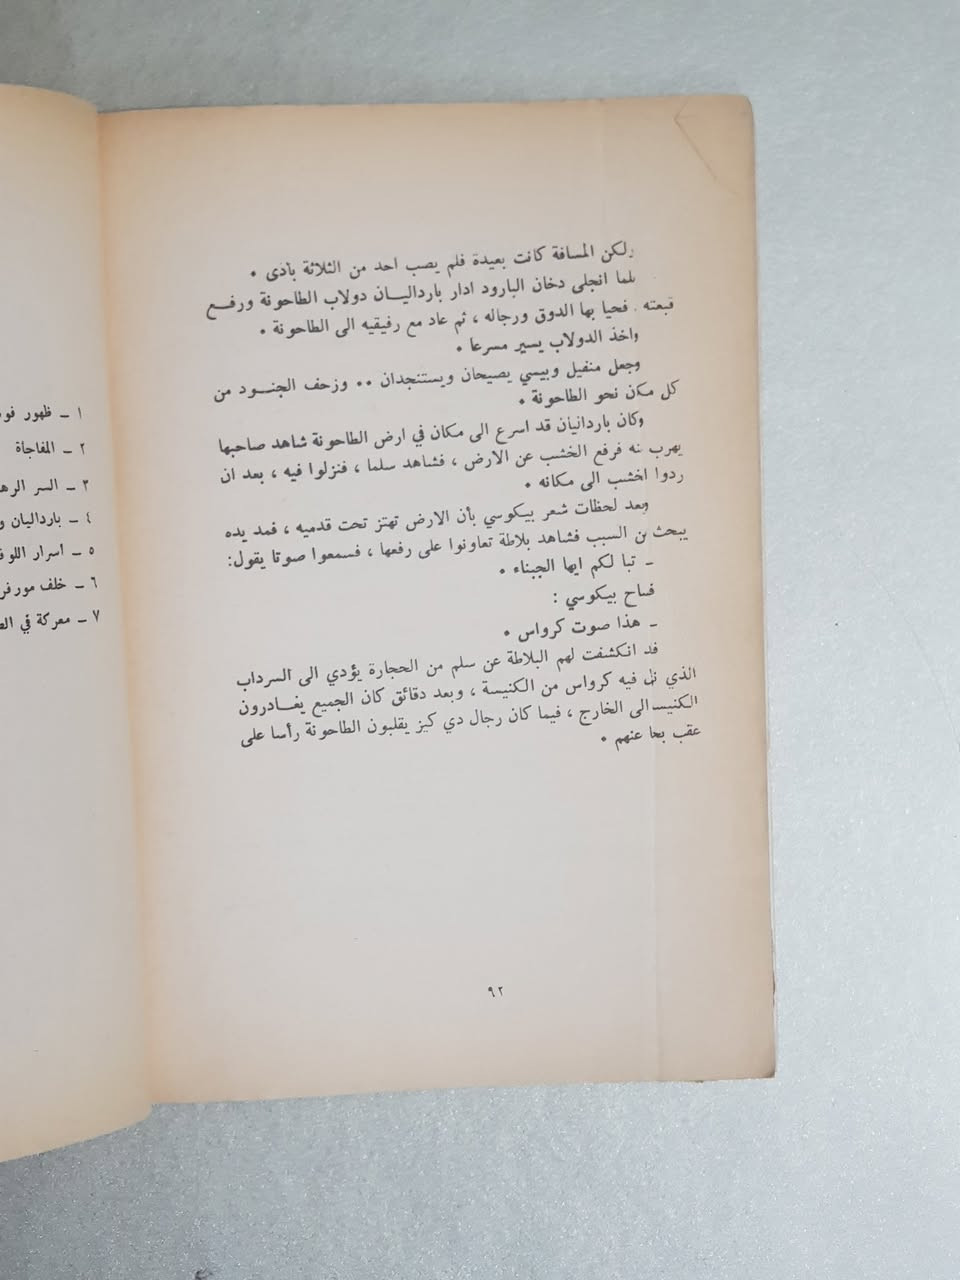 ولكن المسافة كانت بعيدة فلم يصب احد من الثلاثة بأذى .
فلما انجلى دخان البارود ادار بارداليـان دولاب الطاحونة ورفـع
قبعته . فحيا بها الدوق ورجاله ، ثم عاد مع رفيقيه الى الطاحونة .
واخذ الدولاب يسير مسرعا .
وجعل منفيل وبيسي يصيحان ويستنجدان .. وزحف الجنـود من
كل مكان نحو الطاحونة .
وكان باردانيان قد اسرع الى مكان في ارض الطاحونة شاهد صاحبها
يهرب منه فرفع الخشب عن الارض ، فشاهد سلما ، فنزلوا فيه ، بعد ان
ردوا الخشب الى مكانه .
وبعد لحظات شعر بيكوسي بأن الارض تهتز تحت قدميه ، فمد يده
يبحث عن السبب فشاهد بلاطة تعاونوا على رفعها ، فسمعوا صوتا يقول:
ـ تبا لكم ايها الجبناء .
فصاح بيكوسي :
ـ هذا صوت كرواس .
قد انكشفت لهم البلاطة عن سلم من الحجارة يؤدي الى السرداب
الذي نزل فيه كرواس من الكنيسة ، وبعد دقائق كان الجميع يغـادرون
الكنيسة الى الخارج ، فيما كان رجال دي كيز يقلبون الطاحونة رأسا على
عقب بحثا عنهم .
٩٢
١ ـ ظهور
٢ ـ المفاجأة
٣ ـ السر
٤ ـ بارداليان
٥ ـ اسرار
٦ ـ خلف
٧ ـ معركة في